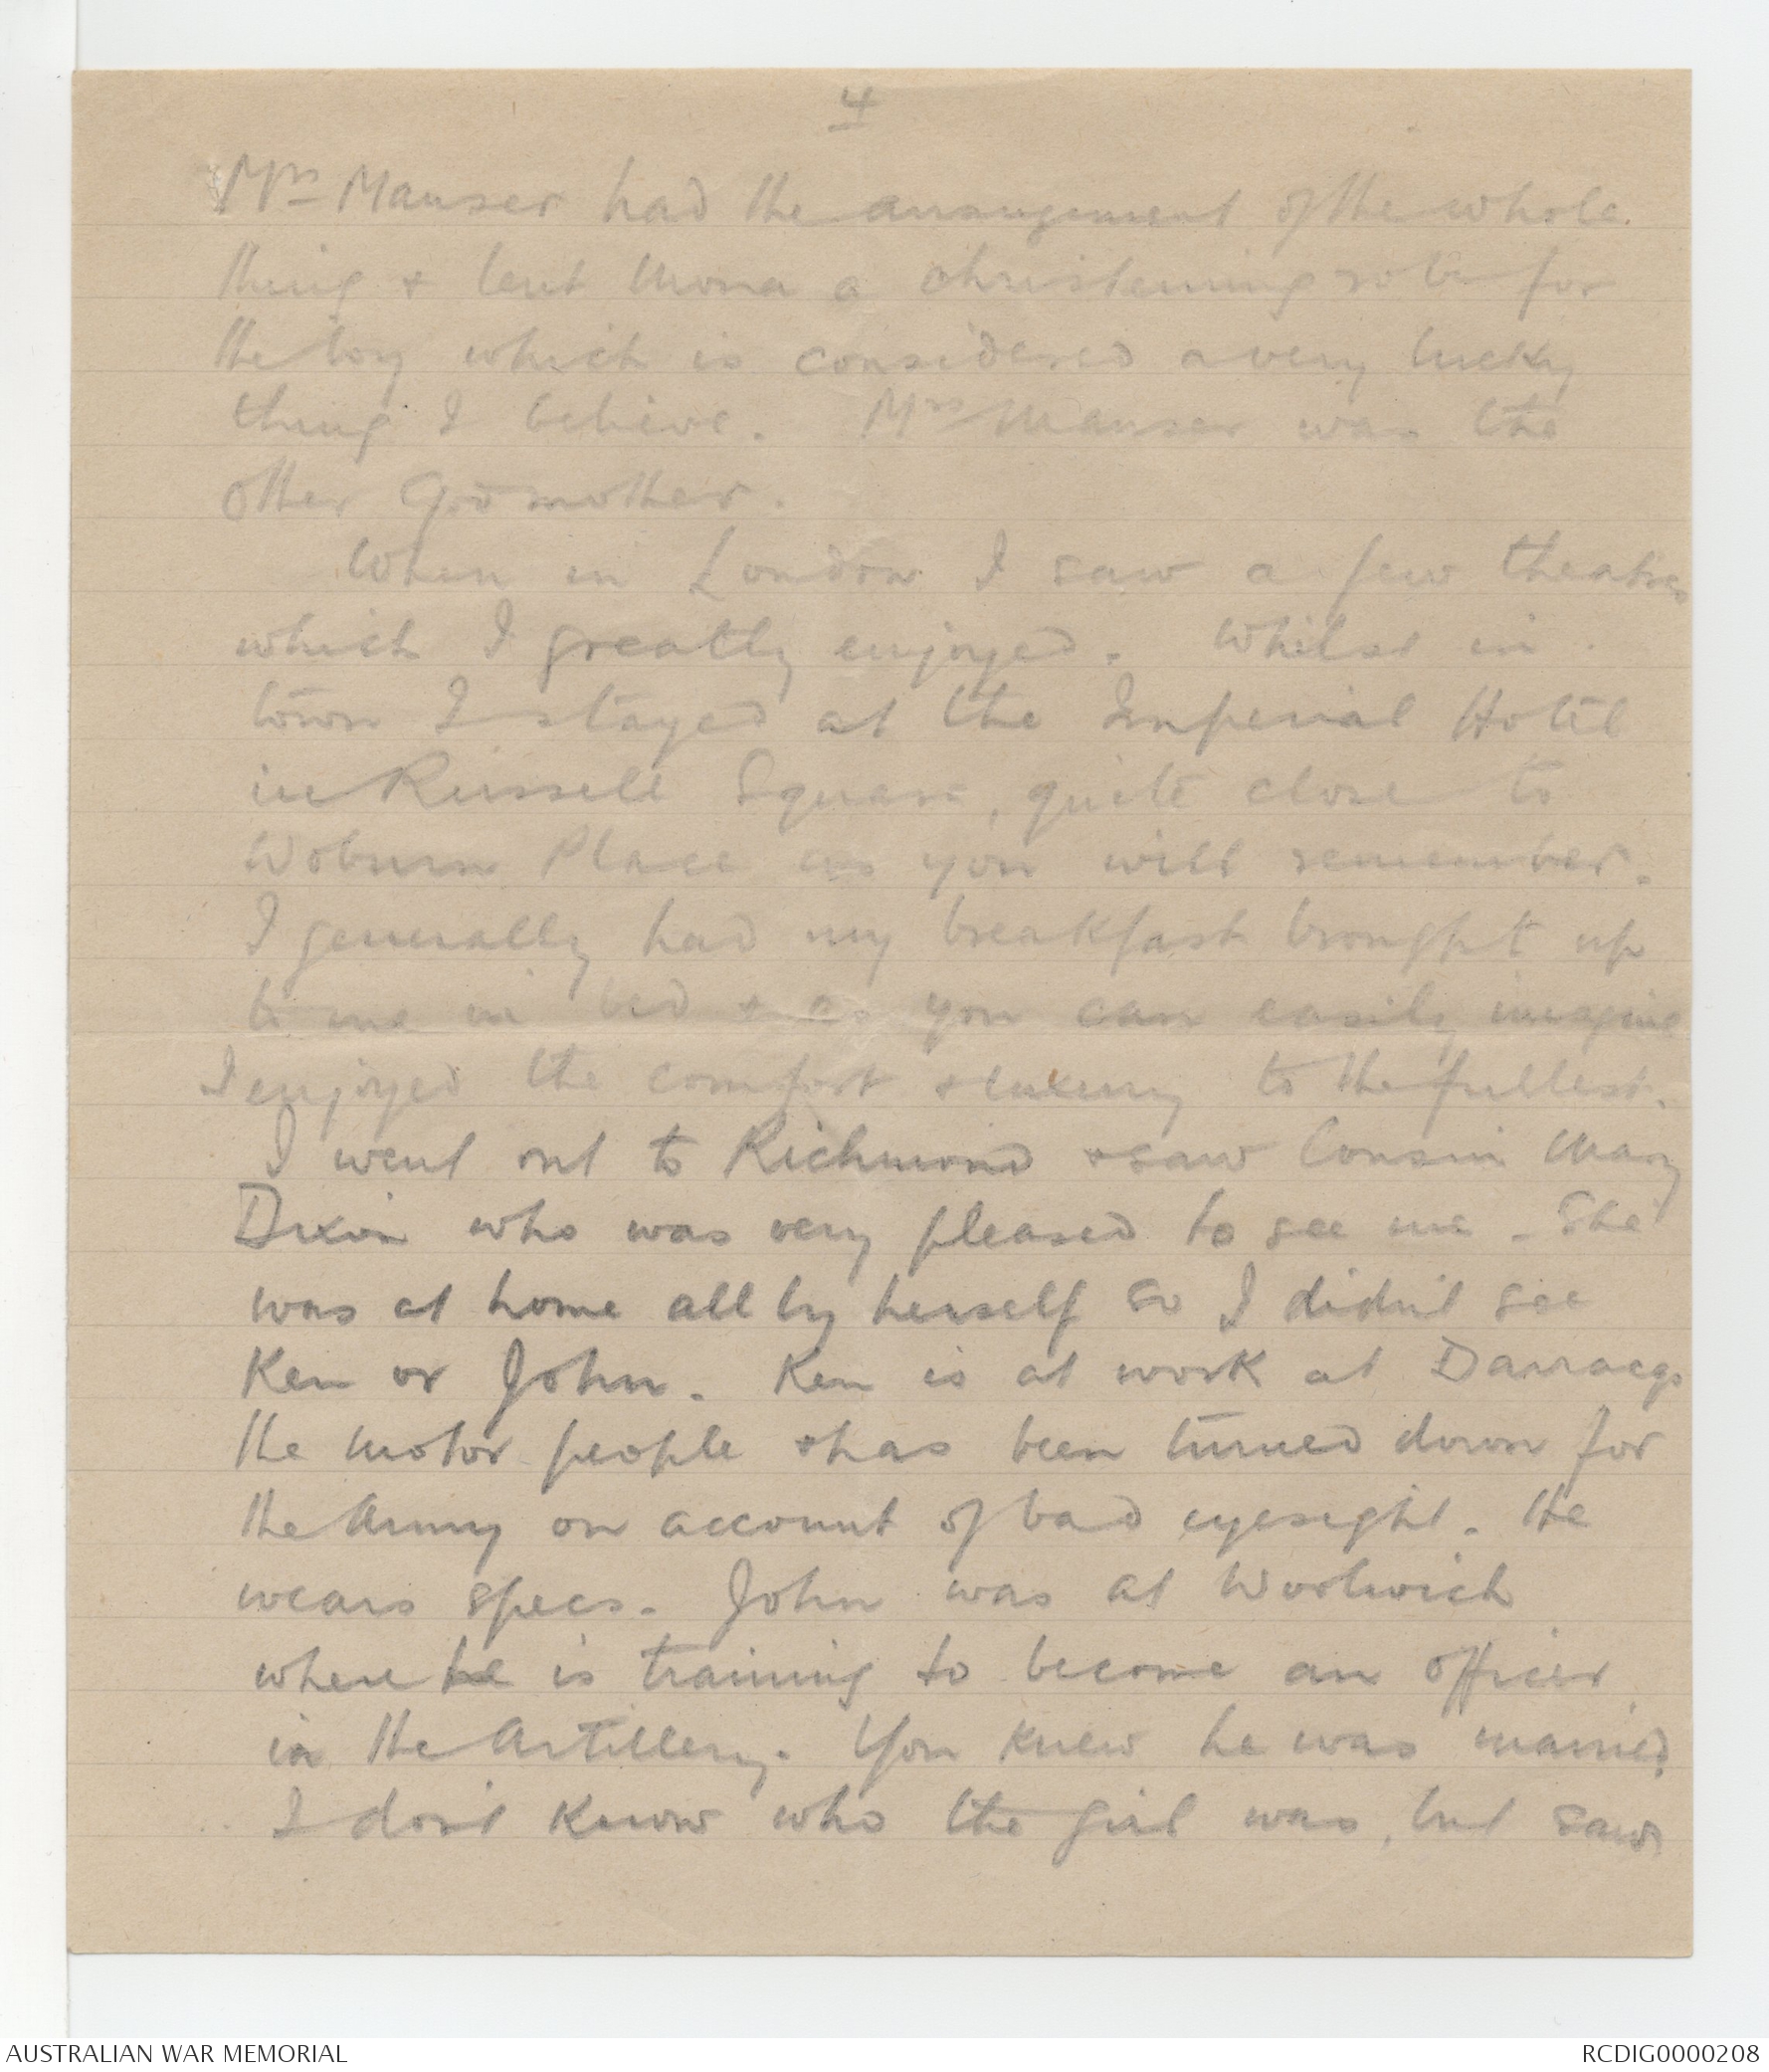 4
Mrs Manser had the arrangement of the whole
thing & lent Mona a christening robe for
the boy which is considered a very lucky
thing I believe. Mrs Manser was the
other Godmother.
When in London I saw a few theatres
which I greatly enjoyed. Whilst in
town I stayed at the Imperial Hotel
in Russell Square, quite close to
Woburn Place as you will remember.
I generally had my breakfast brought up
to me in bed & as you can easily imagine
I enjoyed the comfort & luxury to the fullest.
I went out to Richmond & saw Cousin Mary
Dixon who was very pleased to see me. She
was at home all by herself so I didn't see
Ken or John. Ken is at work at Darracqs
the motor people & has been turned down for
the Army on account of bad eyesight. He
wears specs. John was at Woolwich
where he is training to become an officer
in the Artillery. You knew he was married.
I don't know who the girl was, but saw
AUSTRALIAN WAR MEMORIAL
RCDIG0000208